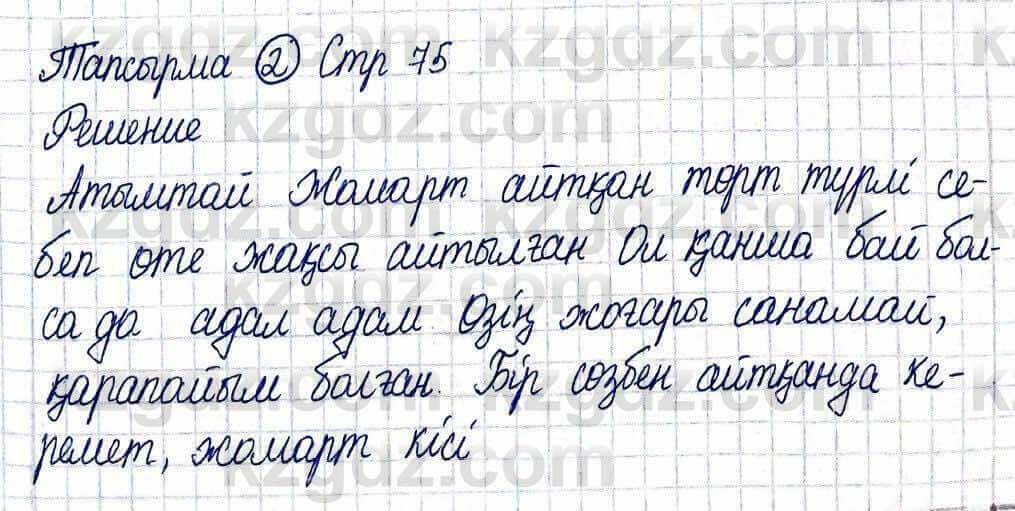 Тапсырма ② Стр 75
Решение
Атымтай Жомарт айтқан төрт түрлі се-
беп өте жақсы айтылған Ол қанша бай бол-
са да адал адам. Өзің жоғары санамай,
қарапайым болған. Бір сөзбен айтқанда ке-
ремет, жомарт кісі
kzgdz.com